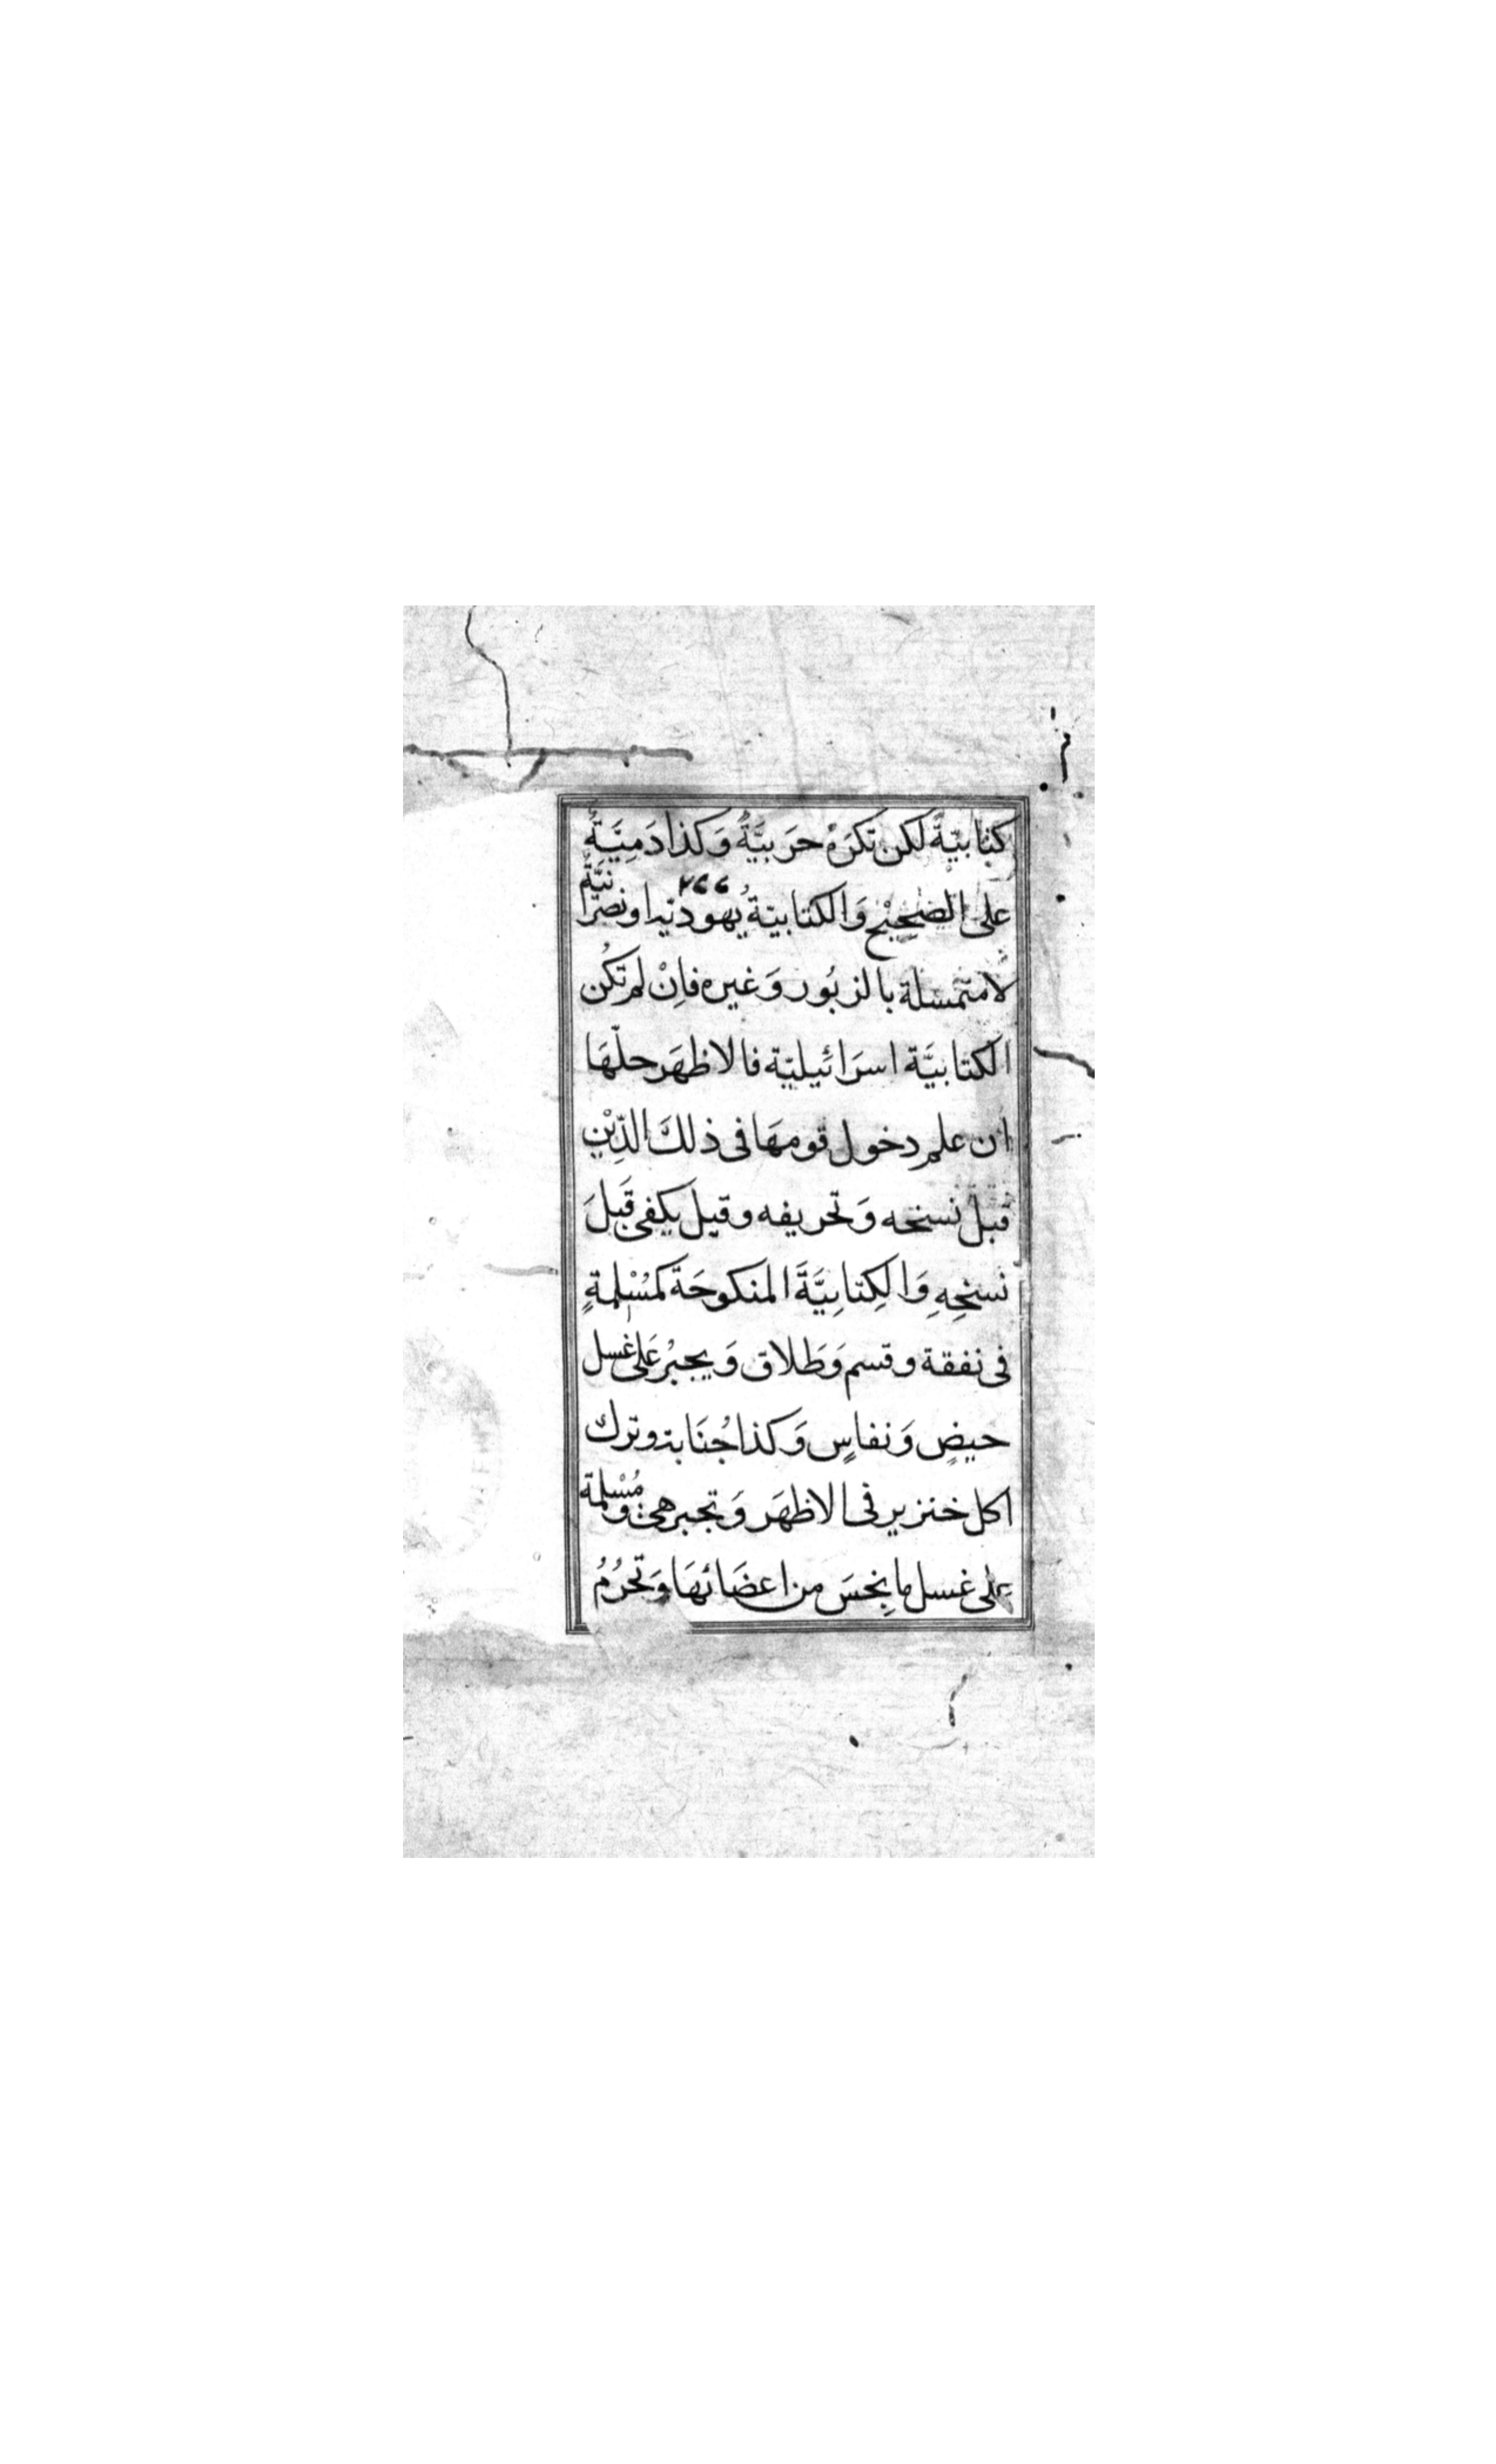 كتابيّةً لكن تكرَهْ حرَبيَّةٌ وَكذا دَمِيَّةٌ
على الصَحِيْح وَالكتابيّةُ يهوديّة او نصرانيَّةٌ
لا متمسّلة بالزبُور وَغيره فاِنْ لم تكُن
الكتابيَّة اسرَائيليّة فالاظهَر حلّهَا
ان علم دخول قومهَا فى ذلكَ الدِّيْنِ
قبل نسخه وَتحريفه وقيلَ يكفى قَبلَ
نسخِهِ وَالكِتابيَّةَ المنكوحَةَ كَمُسْلِمةٍ
فى نفقة وقسم وَطَلاق وَيجبرْ عَلى غسل
حيضٍ وَنفاسٍ وَكذا جُنَابة وترك
اكل خنزير فى الاظهَر وَتجبر هى وَمُسْلمة
على غسل ما نجسَ من اعضَائهَا وَتحرُمُ